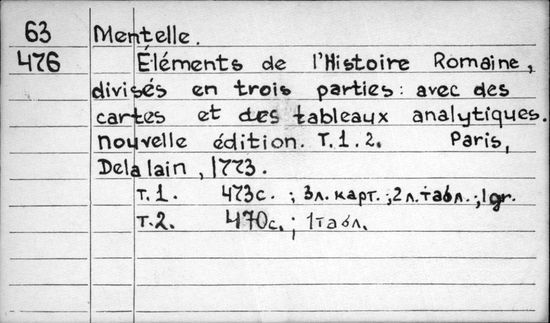 63 Mentelle.
476 Éléments de l'Histoire Romaine,
divisés en trois parties: avec des
cartes et des tableaux analytiques.
nouvelle édition. T.1.2. Paris,
Delalain, 1773.
т.1. 473с. ; 3л. карт. ; 2л. табл. ; 1gr.
т.2. 470с. ; 1табл.